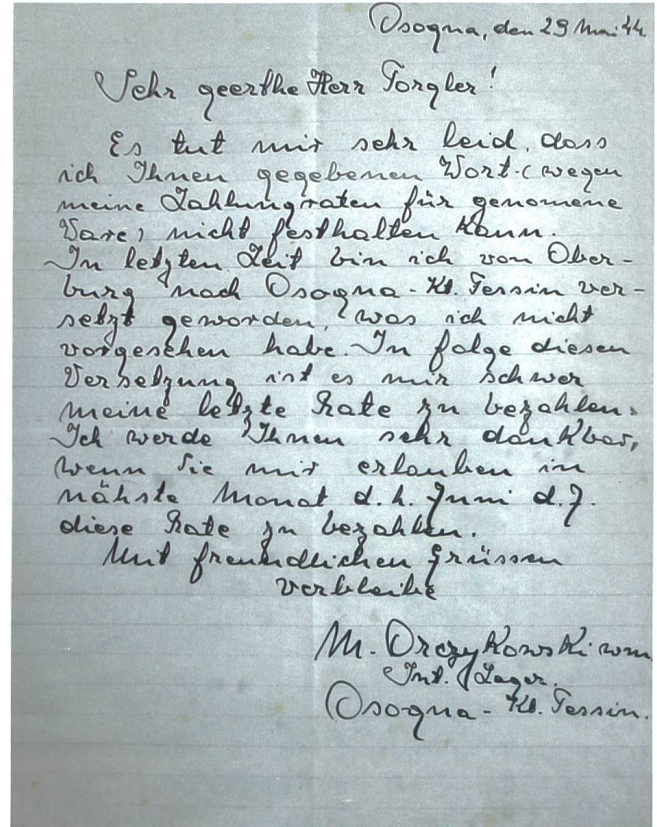 Osogna, den 29 Mai 44
Sehr geerthe Herr Torgler!
Es tut mir sehr leid, dass
ich Ihnen gegebenen Wort (wegen
meine Zahlungraten für genomene
Ware) nicht festhalten kann.
In letzten Zeit bin ich von Ober-
burg nach Osogna - Kt. Tessin ver-
setzt geworden, was ich nicht
vorgesehen habe. In folge diesen
Versetzung ist es mir schwer
meine letzte Rate zu bezahlen.
Ich werde Ihnen sehr dankbar,
wenn Sie mir erlauben in
nähste Monat d.h. Juni d.J.
diese Rate zu bezahlen.
Mit freundlichen Grüssen
verbleibe
M. Orczykowski
Int. Lager.
Osogna - Kt. Tessin.